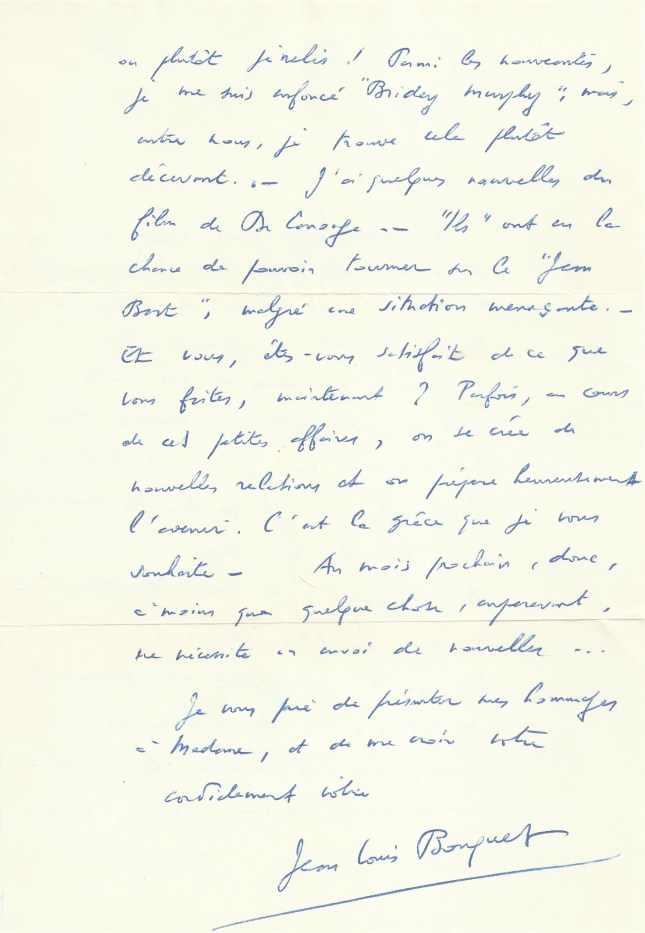 ou plutôt je relis ! Parmi les nouveautés,
je me suis enfoncé "Bridey Murphy", mais,
entre nous, je trouve cela plutôt
décevant. — J'ai quelques nouvelles du
film de De Canonge — "Ils" ont eu la
chance de pouvoir tourner sur le "Jean
Bart", malgré une situation menaçante. —
Et vous, êtes-vous satisfait de ce que
vous faites, maintenant ? Parfois, au cours
de ces petites affaires, on se crée de
nouvelles relations et on prépare heureusement
l'avenir. C'est la grâce que je vous
souhaite — Au mois prochain, donc,
à moins que quelque chose, auparavant,
ne nécessite un envoi de nouvelles ...
Je vous prie de présenter mes hommages
à Madame, et de me croire votre
cordialement vôtre
Jean Louis Bouquet